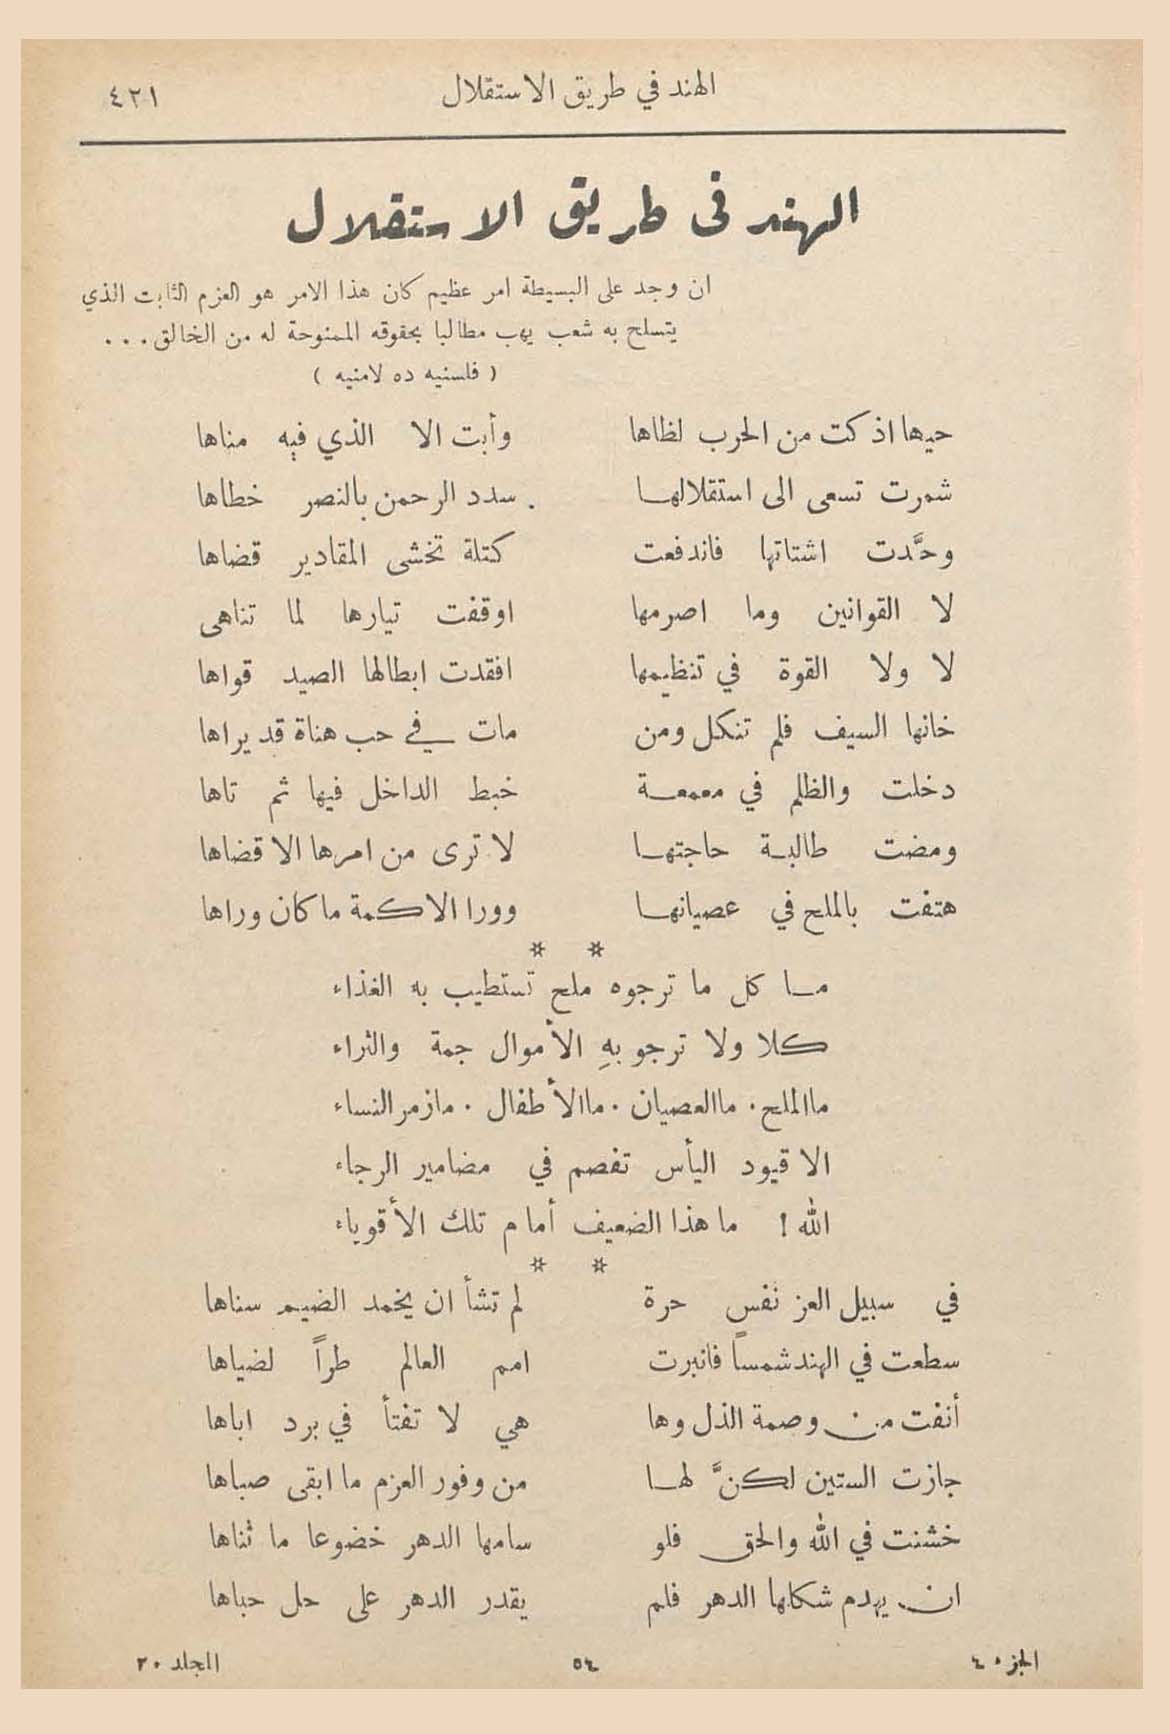 الهند في طريق الاستقلال ٤٢١
الهند في طريق الاستقلال
ان وجد على البسيطة امر عظيم كان هذا الامر هو العزم الثابت الذي
يتسلح به شعب يهب مطالبا بحقوقه الممنوحة له من الخالق...
( فلسنيه ده لامنيه )
حيها اذ كت من الحرب لظاها وأبت الا الذي فيه مناها
شمرت تسعى الى استقلالهـا سدد الرحمن بالنصر خطاها
وحَّدت اشتاتها فاندفعت كتلة تخشى المقادير قضاها
لا القوانين وما اصرمها اوقفت تيارها لما تناهى
لا ولا القوة في تنظيمها افقدت ابطالها الصيد قواها
خانها السيف فلم تنكل ومن مات في حب هناة قد يراها
دخلت والظلم في معمعـة خبط الداخل فيها ثم تاها
ومضت طالبـة حاجتهـا لا ترى من امرها الا قضاها
هتفت بالملح في عصيانهـا وورا الاكمة ما كان وراها
* *
مـا كل ما ترجوه ملح تستطيب به الغذاء
كلا ولا ترجو بهِ الأموال جمة والثراء
ماالملح. ماالعصيان. ماالأطفال. مازمر النساء
الا قيود اليأس تفصم في مضامير الرجاء
الله ! ما هذا الضعيف أمام تلك الأقوياء
* *
في سبيل العز نفس حرة لم تشأ ان يخمد الضيم سناها
سطعت في الهند شمساً فانبرت امم العالم طراً لضياها
أنفت من وصمة الذل وها هي لا تفتأ في برد اباها
جازت الستين لكنَّ لهـا من وفور العزم ما ابقى صباها
خشنت في الله والحق فلو سامها الدهر خضوعا ما ثناها
ان يهدم شكلها الدهر فلم يقدر الدهر على حل حباها
الجزء ٤ ٥٤ المجلد ٢٠